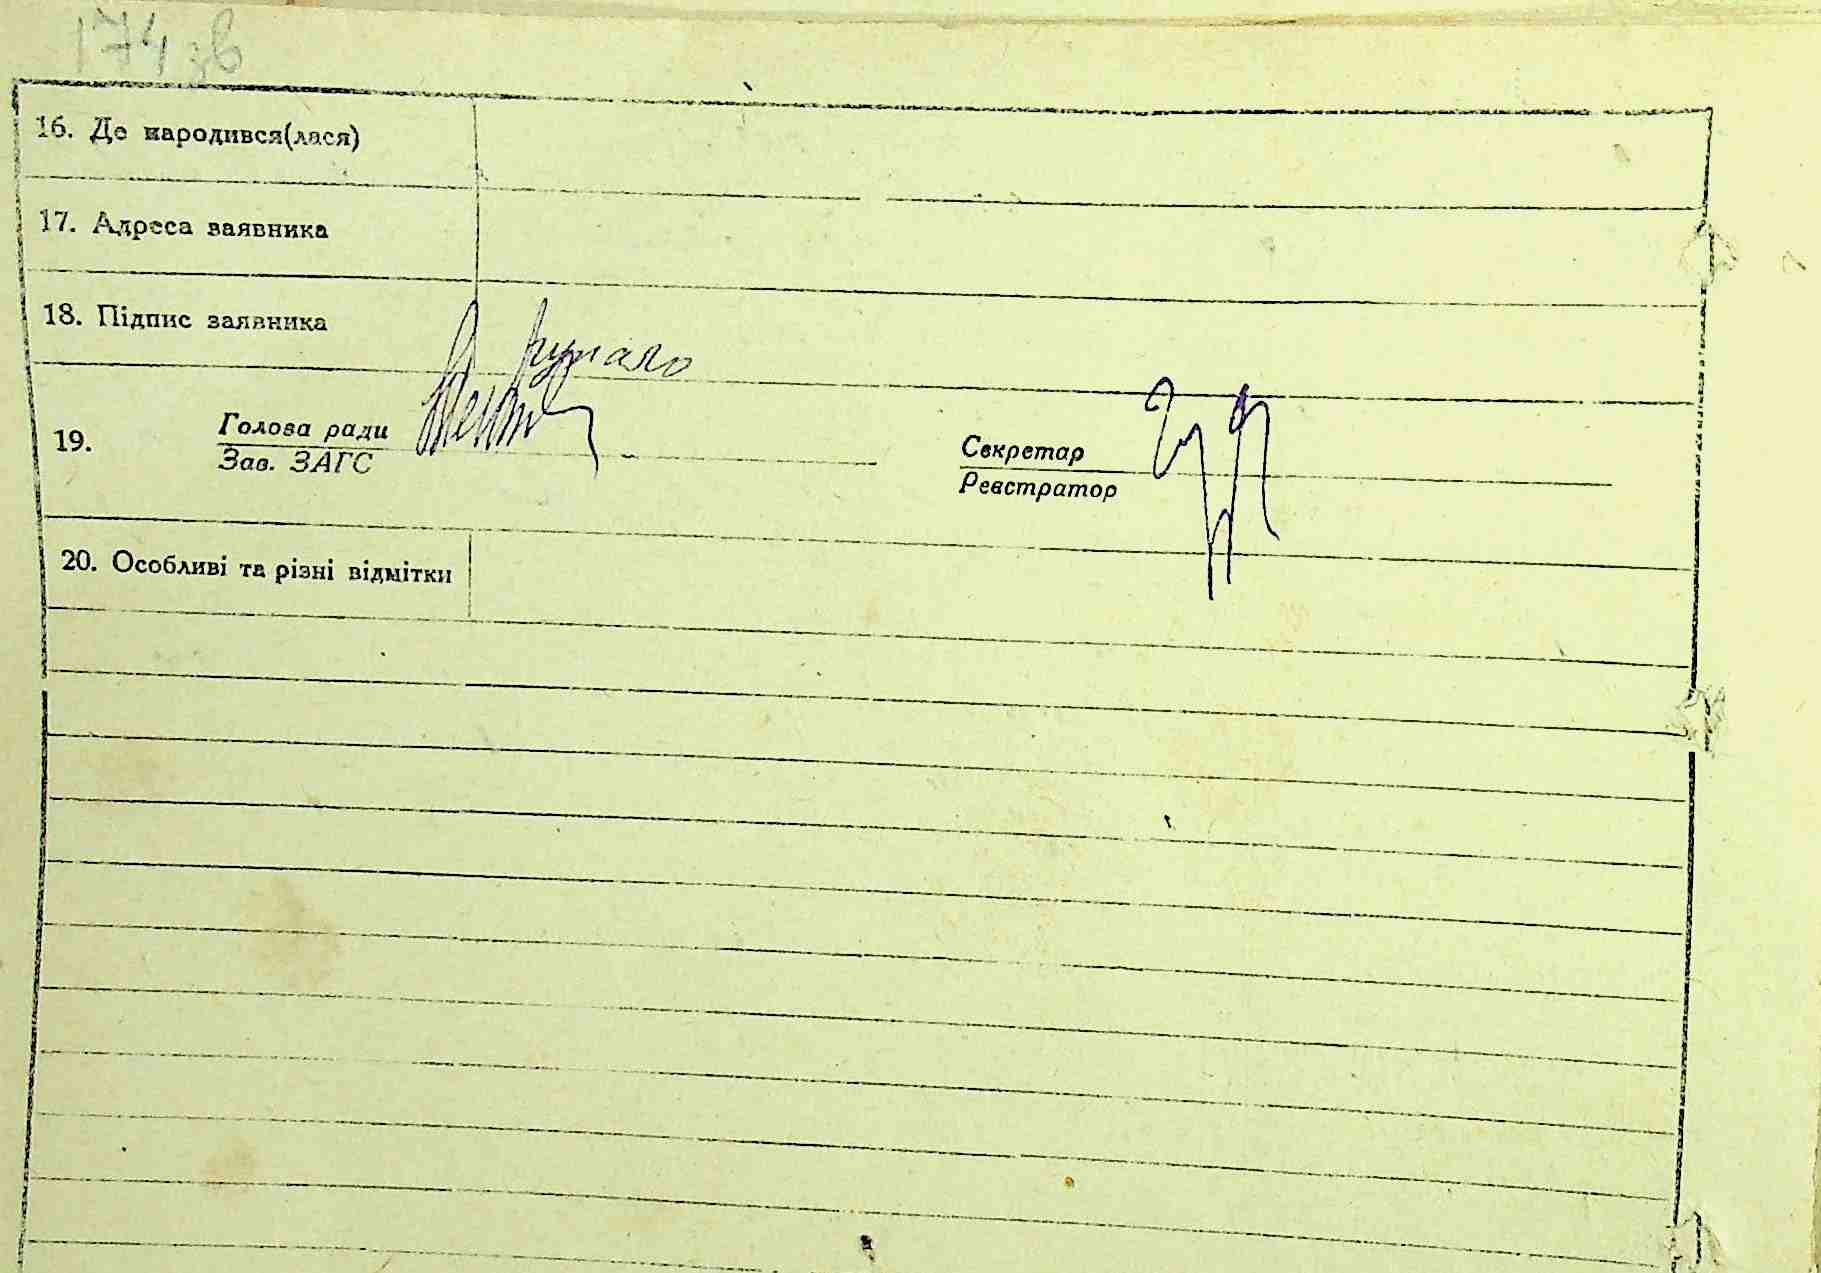 174 зв
16. Де народився(лася)
17. Адреса заявника
18. Підпис заявника
19. Голова ради
Зав. ЗАГС
Секретар
Реєстратор
20. Особливі та різні відмітки